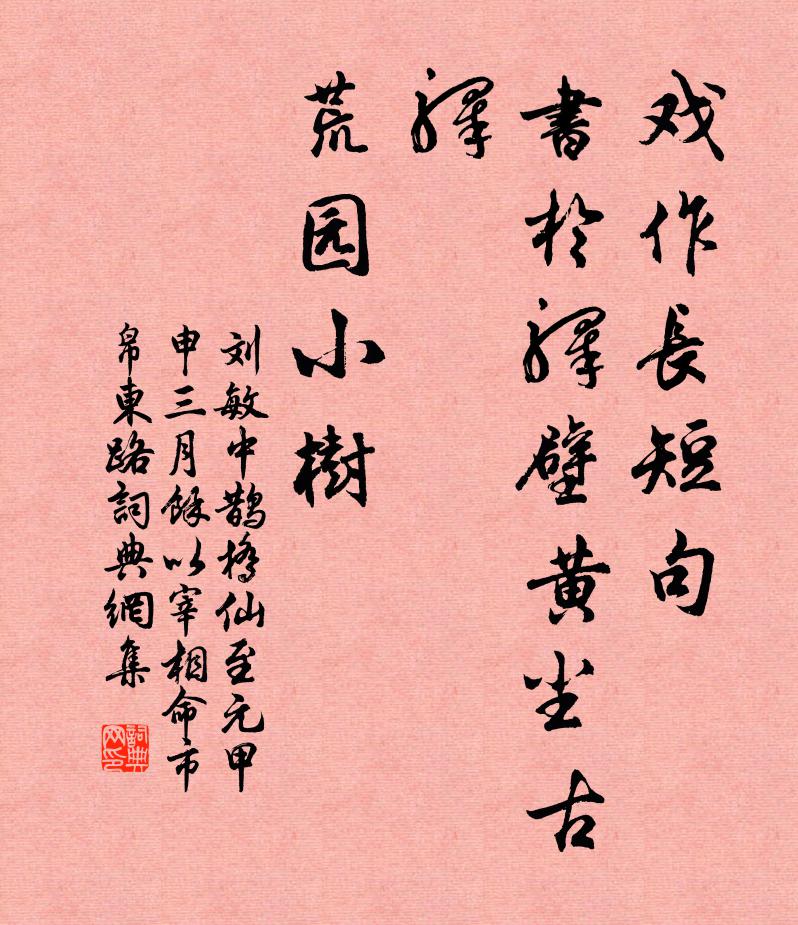 戏作長短句
書於驛壁黄尘古
驛
荒园小樹
刘敏中鹊橋仙至元甲
申三月馀以宰相命市
帛東路詞典網集
詞典
网印